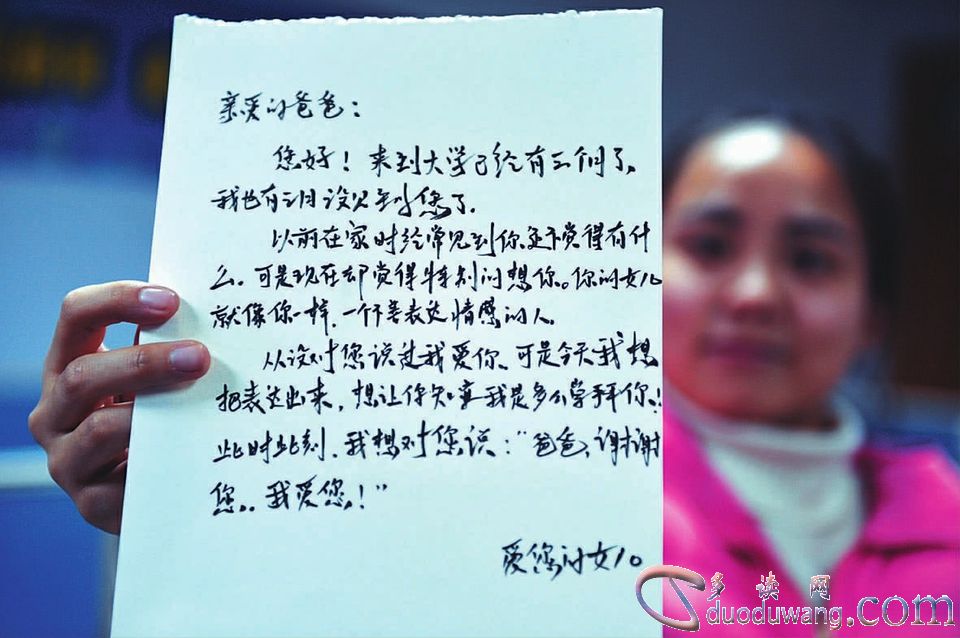 亲爱的爸爸：
您好！来到大学已经有三个月了，
我也有三月没见到您了.
以前在家时经常见到你还不觉得有什
么。可是现在却觉得特别的想你。你的女儿
就像你一样，一个不善表达情感的人.
从没对您说过我爱你，可是今天我想
把表达出来，想让你知道我是多么崇拜你！
此时此刻，我想对您说：“爸爸，谢谢
您，我爱您！”
爱您的女儿
多读网
duoduwang.com